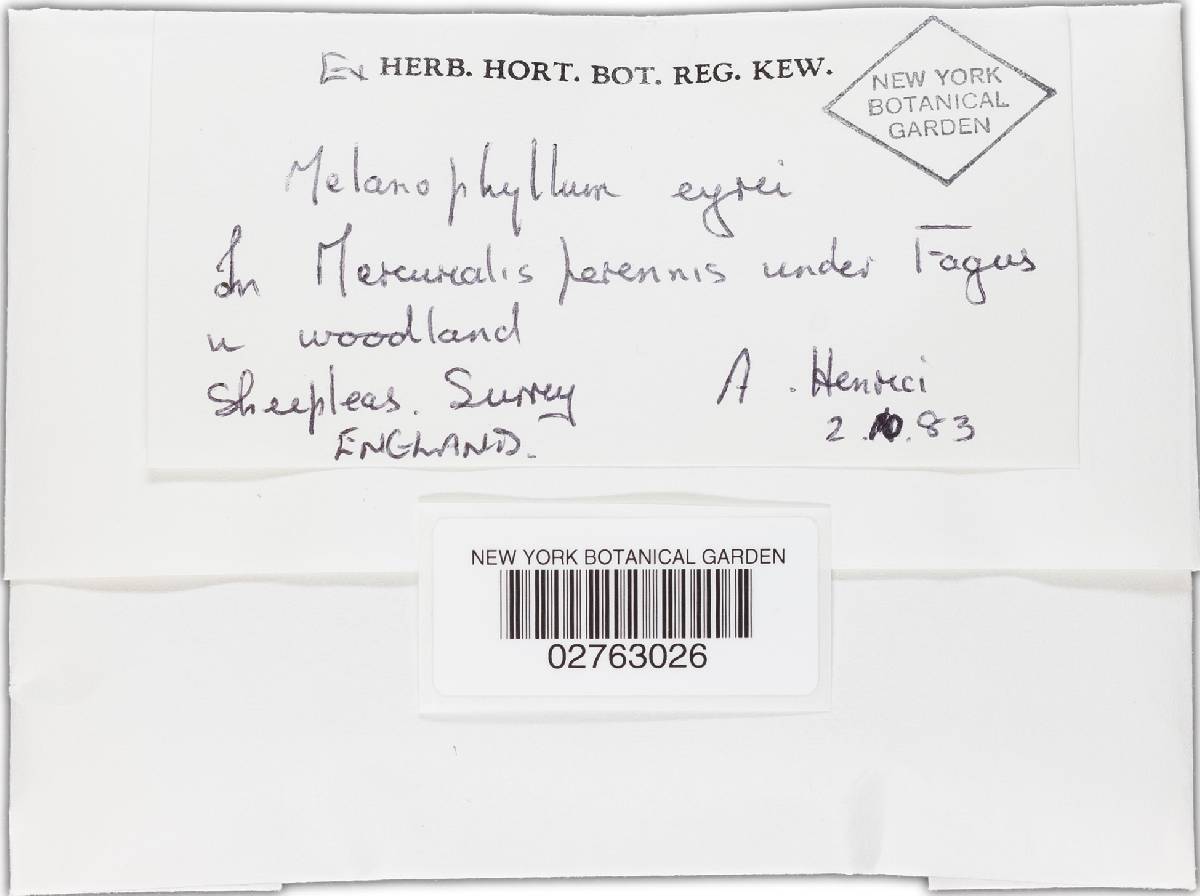 Ex HERB. HORT. BOT. REG. KEW.
NEW YORK
BOTANICAL
GARDEN
Melanophyllum eyrei
In Mercurialis perennis under Fagus
in woodland
Sheepleas. Surrey
ENGLAND.
A. Henrici
2.10.83
NEW YORK BOTANICAL GARDEN
02763026